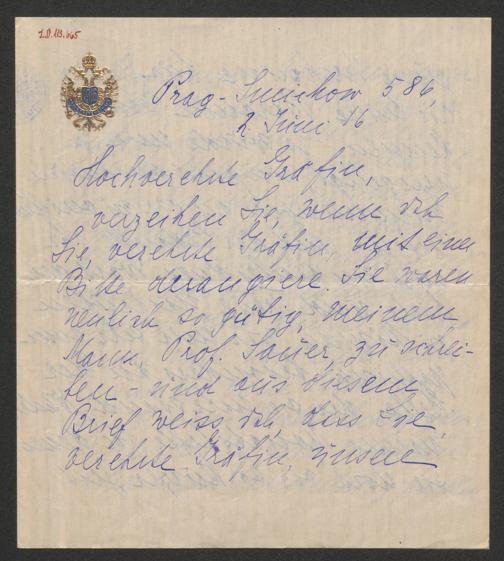 I.N. 113.665
Prag-Smichow 586,
2 Juni 16
Hochverehrte Gräfin,
verzeihen Sie, wenn ich
Sie, verehrte Gräfin, mit einer
Bitte derangiere. Sie waren
neulich so gütig, meinem
Mann, Prof. Sauer, zu schrei-
ben - und aus diesem
Brief weiss ich, dass Sie,
verehrte Gräfin, unsere